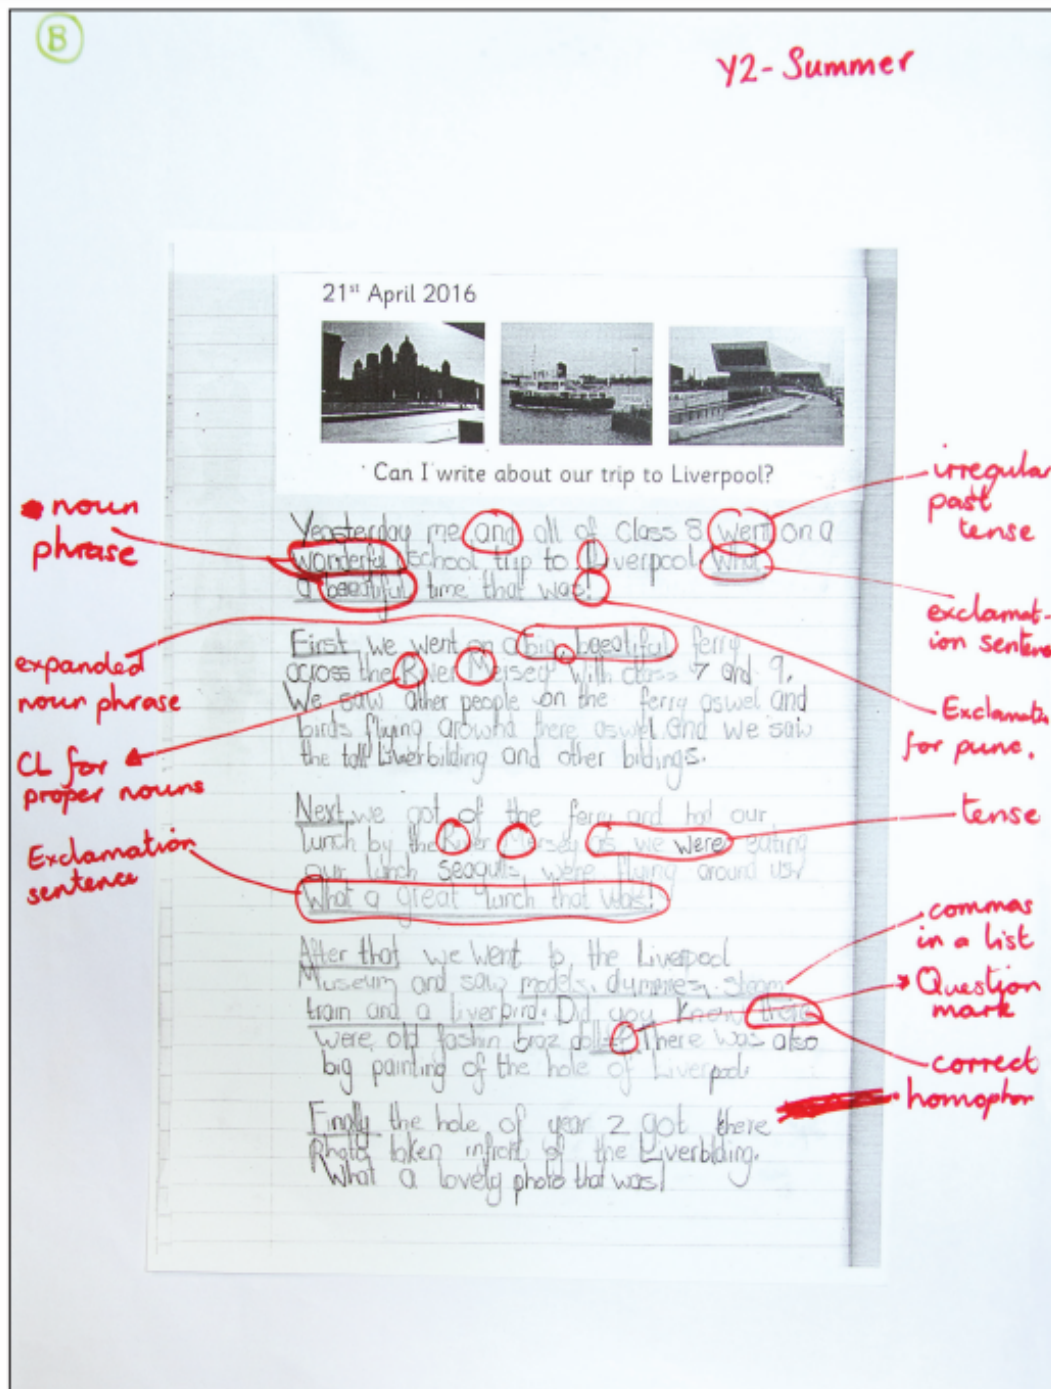 B
Y2- Summer
21st April 2016
Can I write about our trip to Liverpool?
noun
phrase
expanded
noun phrase
CL for
proper nouns
Exclamation
sentence
Yeasterday me and all of Class 8 went on a
wonderful school trip to Liverpool. What
a beautiful time that was!
First, we went on a big, beeatiful ferry
across the River Mersey with class 7 and 9.
We saw other people on the ferry aswel and
birds flying around there aswel and we saw
the tall Liverbilding and other bildings.
Next, we got of the ferry and had our
lunch by the River Mersey as we were eating
our lunch seagulls were flying around us.
What a great lunch that was!
After that we went to the Liverpool
Museum and saw models, dummies, steam
train and a liverbird. Did you know there
were old fashin braz dolls? There was also
big painting of the hole of Liverpool.
Finally the hole of year 2 got there
Photo taken infront of the Liverbilding.
What a lovely photo that was!
irregular
past
tense
exclamat-
ion sentence
Exclamatn
for punc.
tense
commas
in a list
Question
mark
correct
homophon